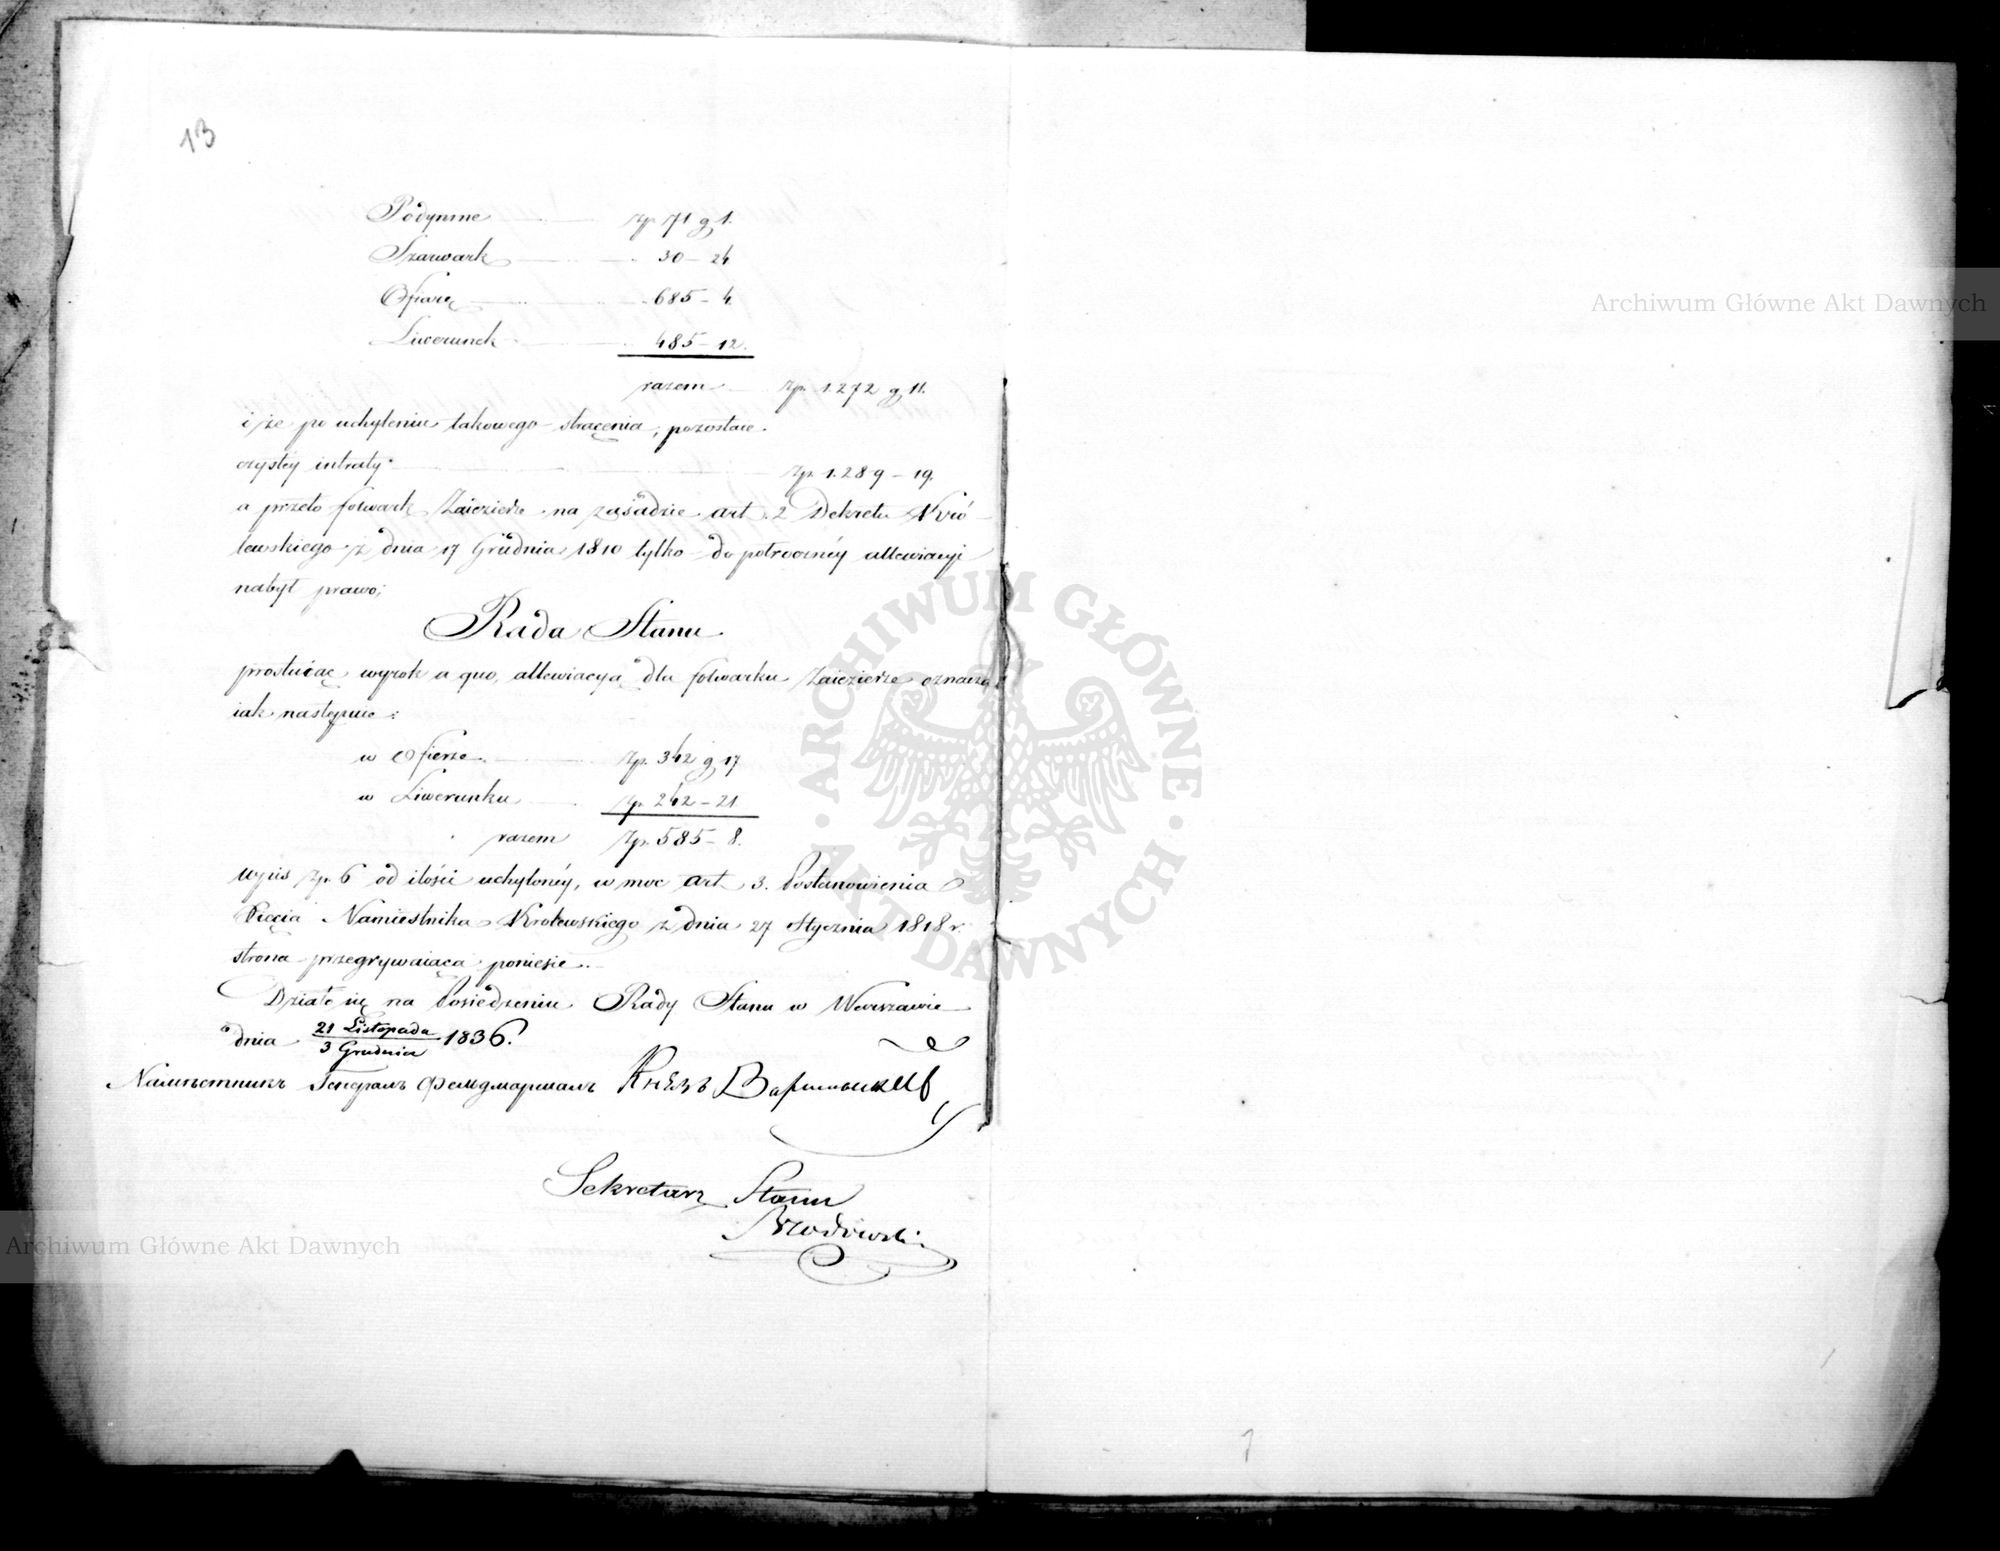 13
Podymne zp. 71 g 1.
Szarwark 30 – 24
Ofiarę 685 – 4.
Liwerunek 485 – 12.
razem zp. 1.272 g 11.
i że po uchyleniu takowego strącenia, pozostaie
czystéy intraty zp. 1.289 – 19.
a przeto folwark Zaiezierze na zasadzie art. 2 Dekretu Kró-
lewskiego z dnia 17 Grudnia 1810 tylko do półrocznéy allewiacyi
nabył prawo;
Rada Stanu
prostuiąc wyrok a quo, allewiacyą dla folwarku Zaiezierze oznacza
iak następuie:
w Ofierze zp. 342 g 17
w Liwerunku zp. 242 – 21
razem zp. 585 – 8.
Wpis zp. 6 od ilości uchylonéy, w moc art. 3. Postanowienia
Xięcia Namiestnika Królewskiego z dnia 27 Stycznia 1818 r.
strona przegrywaiąca poniesie.
Działo się na Posiedzeniu Rady Stanu w Warszawie
dnia 21 Listopada / 3 Grudnia 1836.
Намѣстникъ Генералъ Фельдмаршалъ Князь Варшавскій
Sekretarz Stanu
Brodowski
Archiwum Główne Akt Dawnych
Archiwum Główne Akt Dawnych
ARCHIWUM GŁÓWNE AKT DAWNYCH